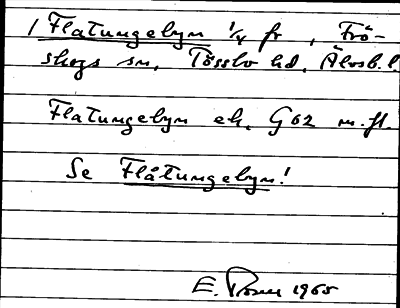 1 Flatungebyn 1/4 fr, Frö-
skogs sn, Tössbo hd, Älvsb. l.
Flatungebyn ek. G62 m.fl.
Se Flåtungebyn!
E. 1965